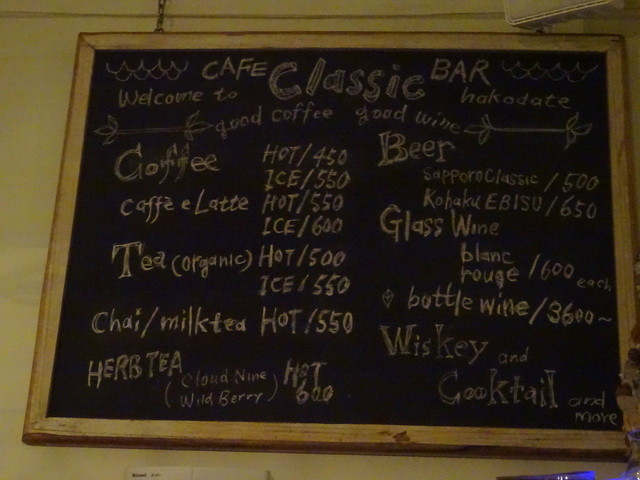 CAFE Classic BAR
Welcome to hakodate
good coffee good wine
Coffee HOT/450
ICE/550
caffè e Latte HOT/550
ICE/600
Tea (organic) HOT/500
ICE/550
Chai/milktea HOT/550
HERB TEA (Cloud Nine
Wild Berry) HOT
600
Beer
Sapporo Classic/500
Kohaku EBISU/650
Glass Wine
blanc
rouge /600 each
bottle wine/3600~
Wiskey and
Cocktail and
more